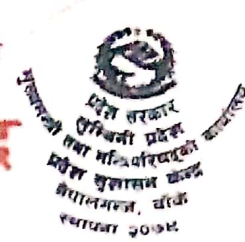 प्रदेश सरकार
लुम्बिनी प्रदेश
मुख्यमन्त्री तथा मन्त्रिपरिषद्को कार्यालय
प्रदेश सुशासन केन्द्र
नेपालगन्ज, बाँके
स्थापना २०७९